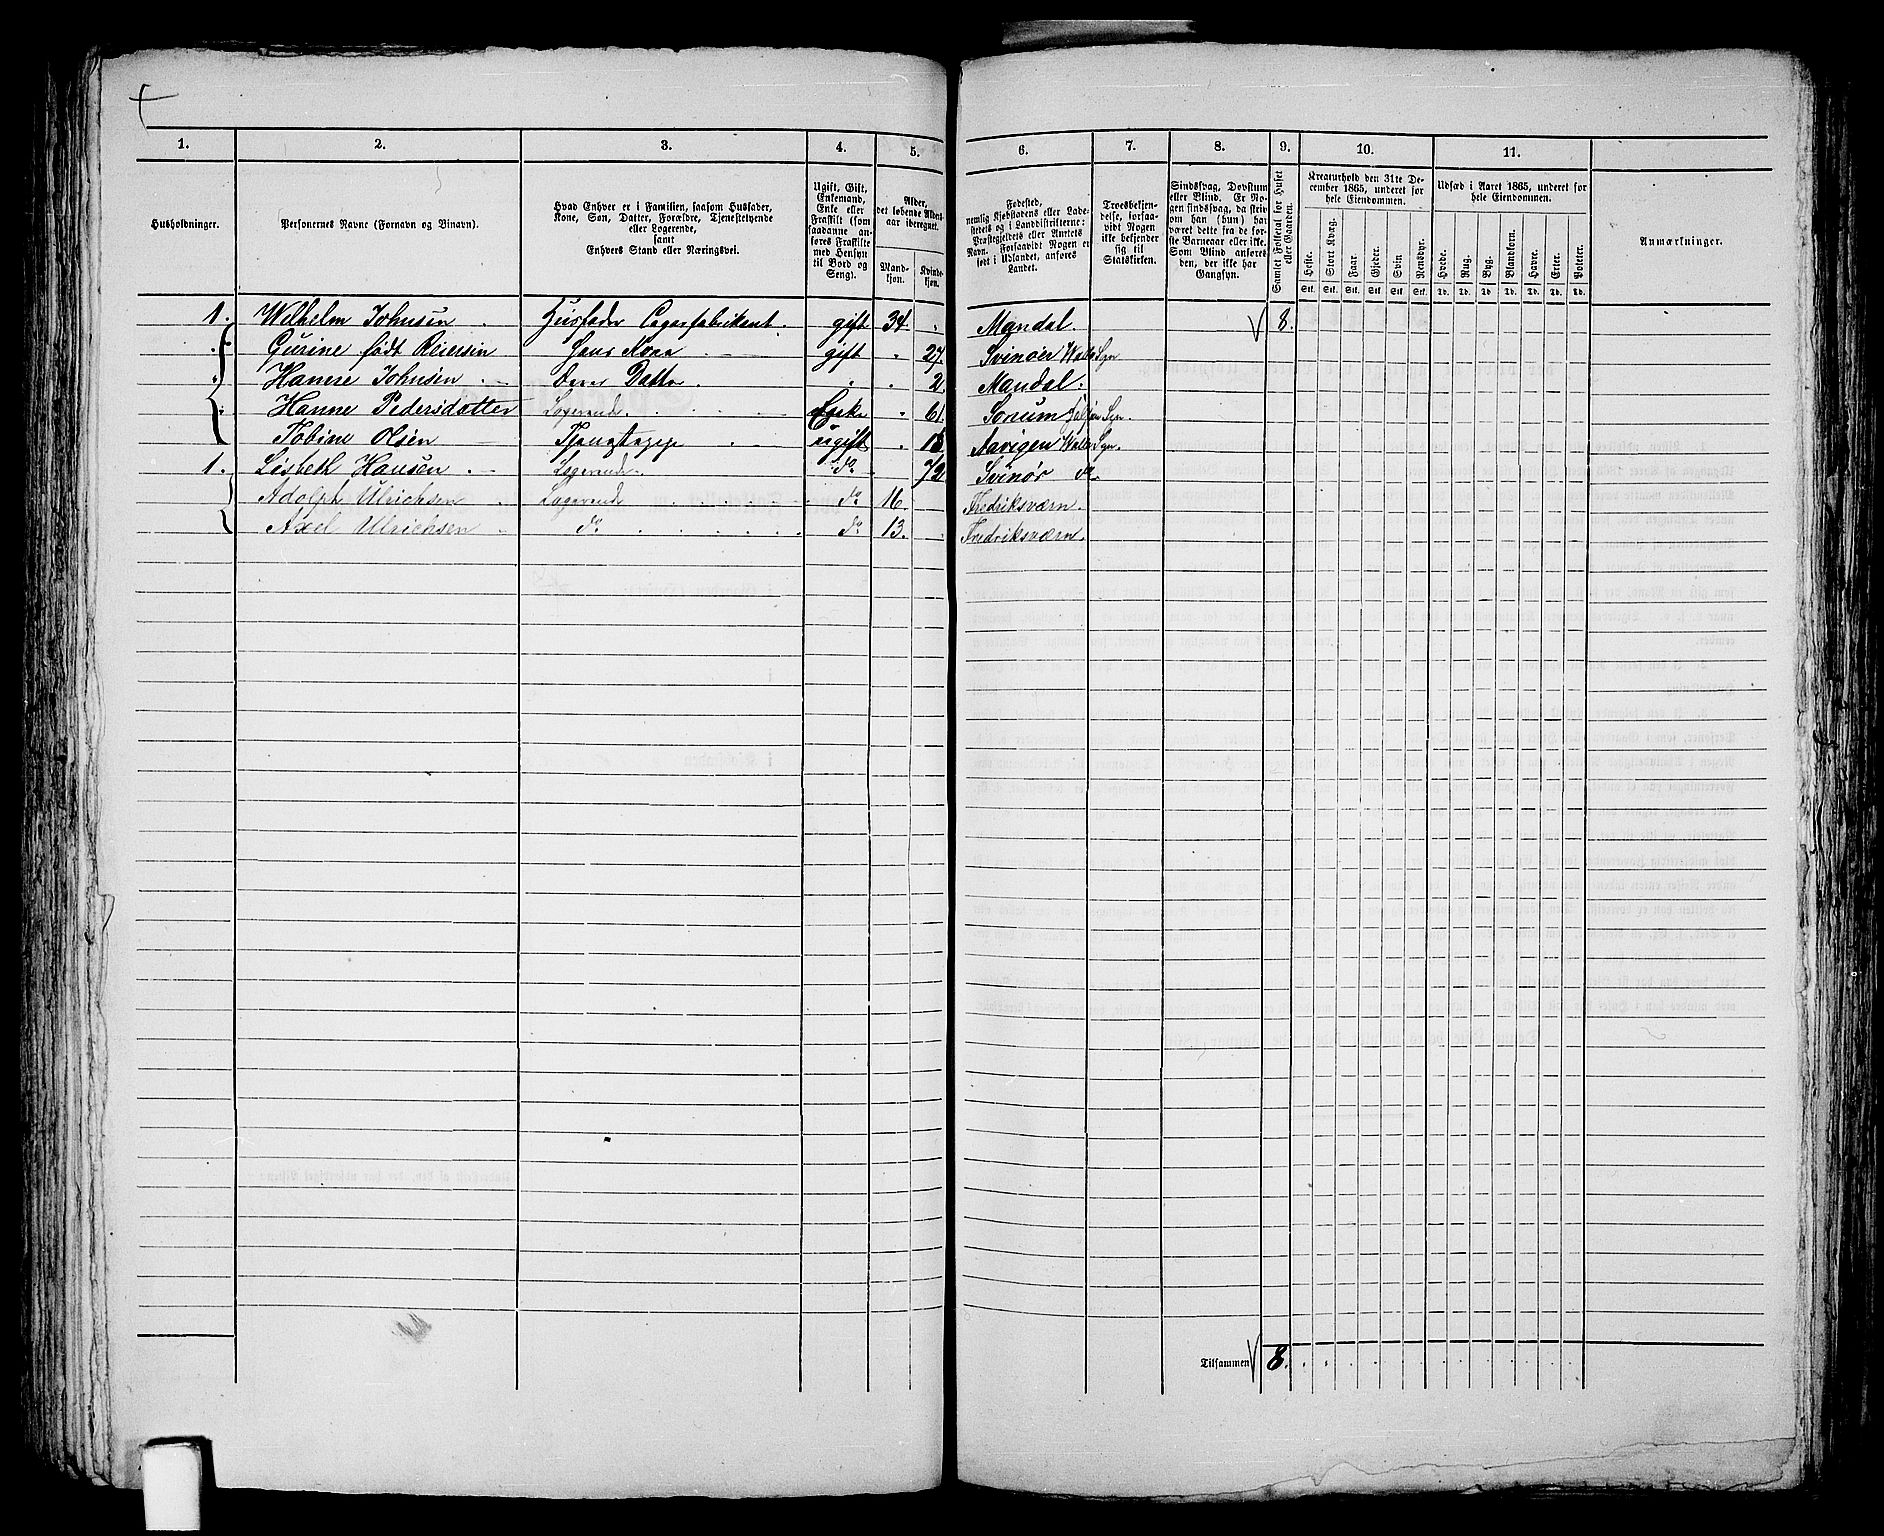 1. 2. 3. 4. 5. 6. 7. 8. 9. 10. 11.
Husholdninger.
Personernes Navne (Fornavn og Binavn).
Hvad Enhver er i Familien, saasom Husfader,
Kone, Søn, Datter, Forældre, Tjenestetyende
eller Logerende,
samt
Enhvers Stand eller Næringsvei.
Ugift, Gift,
Enkemand,
Enke eller
Fraskilt (som
saadanne an-
føres Fraskilte
med Hensyn
til Bord og
Seng).
Alder,
det løbende Alders-
aar iberegnet.
Mand-
kjøn.
Kvinde-
kjøn.
Fødested,
nemlig Kjøbstadens eller Lade-
stedets og i Landdistrikterne:
Præstegjeldets eller Amtets
Navn. Forsaavidt Nogen er
født i Udlandet, anføres
Landet.
Troesbekjen-
delse, forsaa-
vidt Nogen
ikke bekjender
sig til
Statskirken.
Sindssvag, Døvstum
eller Blind. Er No-
gen sindssvag, da skri-
ves om han (hun) har
været dette fra de før-
ste Barneaar eller ikke.
Som Blind anføres
den, der ikke har
Gangsyn.
Samlet Folketal for Huset
eller Gaarden.
Kreaturhold den 31te De-
cember 1865, underet for
hele Eiendommen.
Heste. Stort Kvæg. Faar. Gjeder. Svin Rensdyr.
Stk. Stk. Stk. Stk. Stk. Stk.
Udsæd i Aaret 1865, underet for
hele Eiendommen.
Hvede. Rug. Byg. Blandkorn. Havre. Erter. Poteter.
Td. Td. Td. Td. Td. Td. Td.
Anmærkninger.
1. Wilhelm Johnsen Husfader Cagarfabrikent. gift 34. Mandal. 8.
Gurine født Reiersin Hans Kona gift 27. Svinøer Walle Sgn
Hanne Johnsen Deres Datter 2. Mandal.
Hanne Pedersdatter Logerende. Enke 61. Sgn.
Tobine Olsen ugift Aavigen Walle Sgn.
1. Lisbeth Hansen Logerende. do 72 Svinør do
Adolph Ulrichsen Logerende do 16. Fredriksværn.
Axel Ulrichsen do do 13. Fredriksværn.
Tilsammen 8.